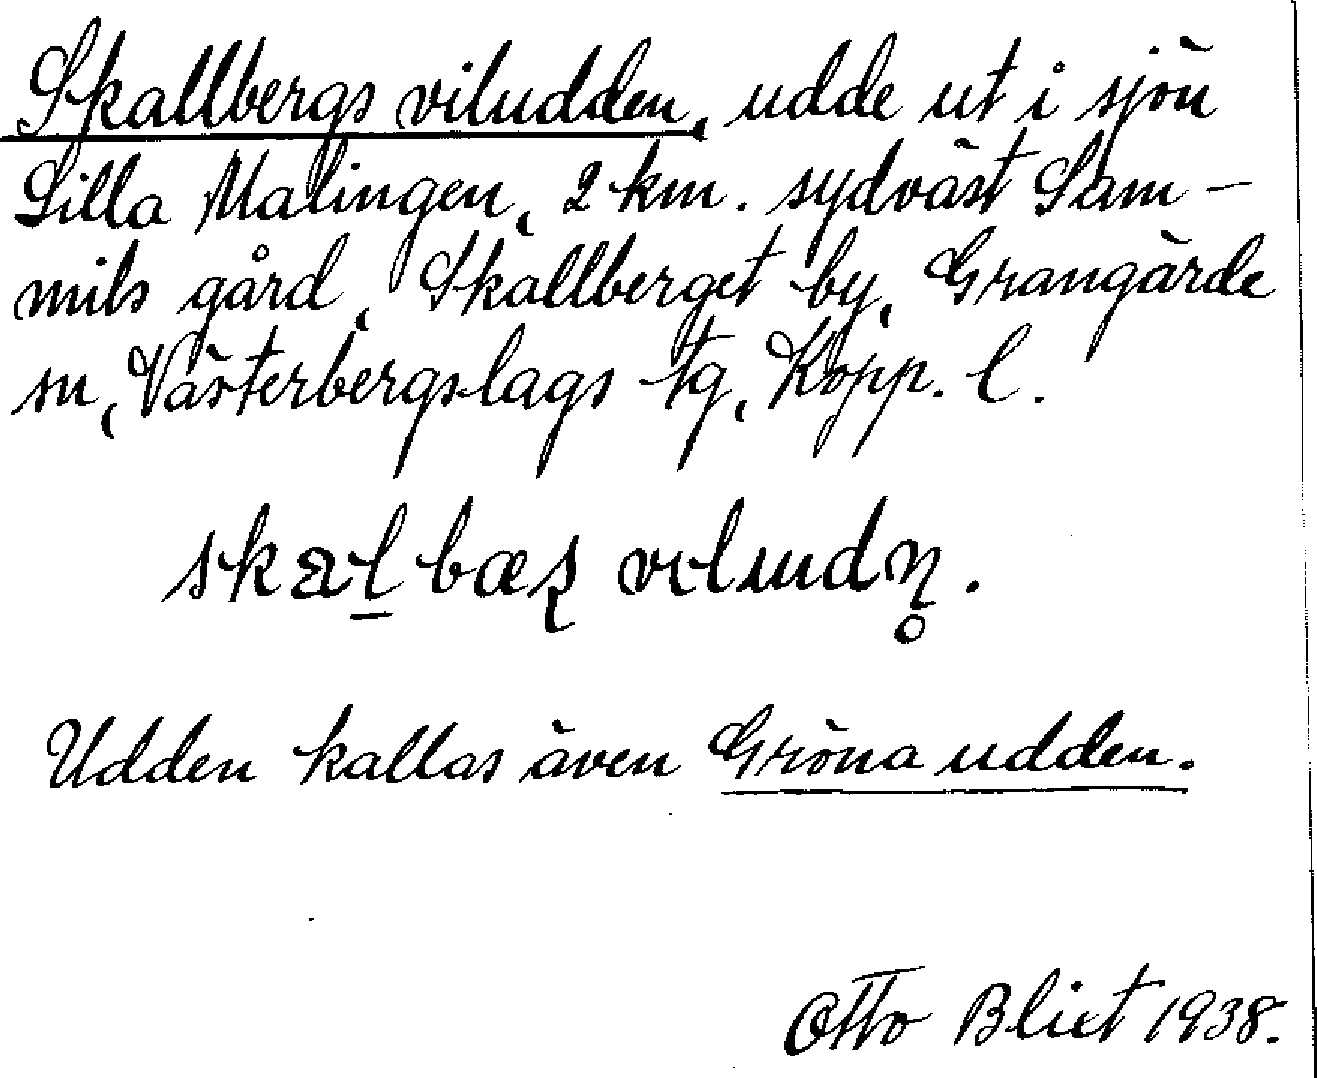 Skallbergs viludden, udde ut i sjön
Lilla Malingen, 2 km. sydväst Sam-
mils gård, Skallberget by, Grangärde
sn, Västerbergslags tg, Kopp. l.
vɩludn̥.
Udden kallas även Gröna udden.
Otto Blixt 1938.